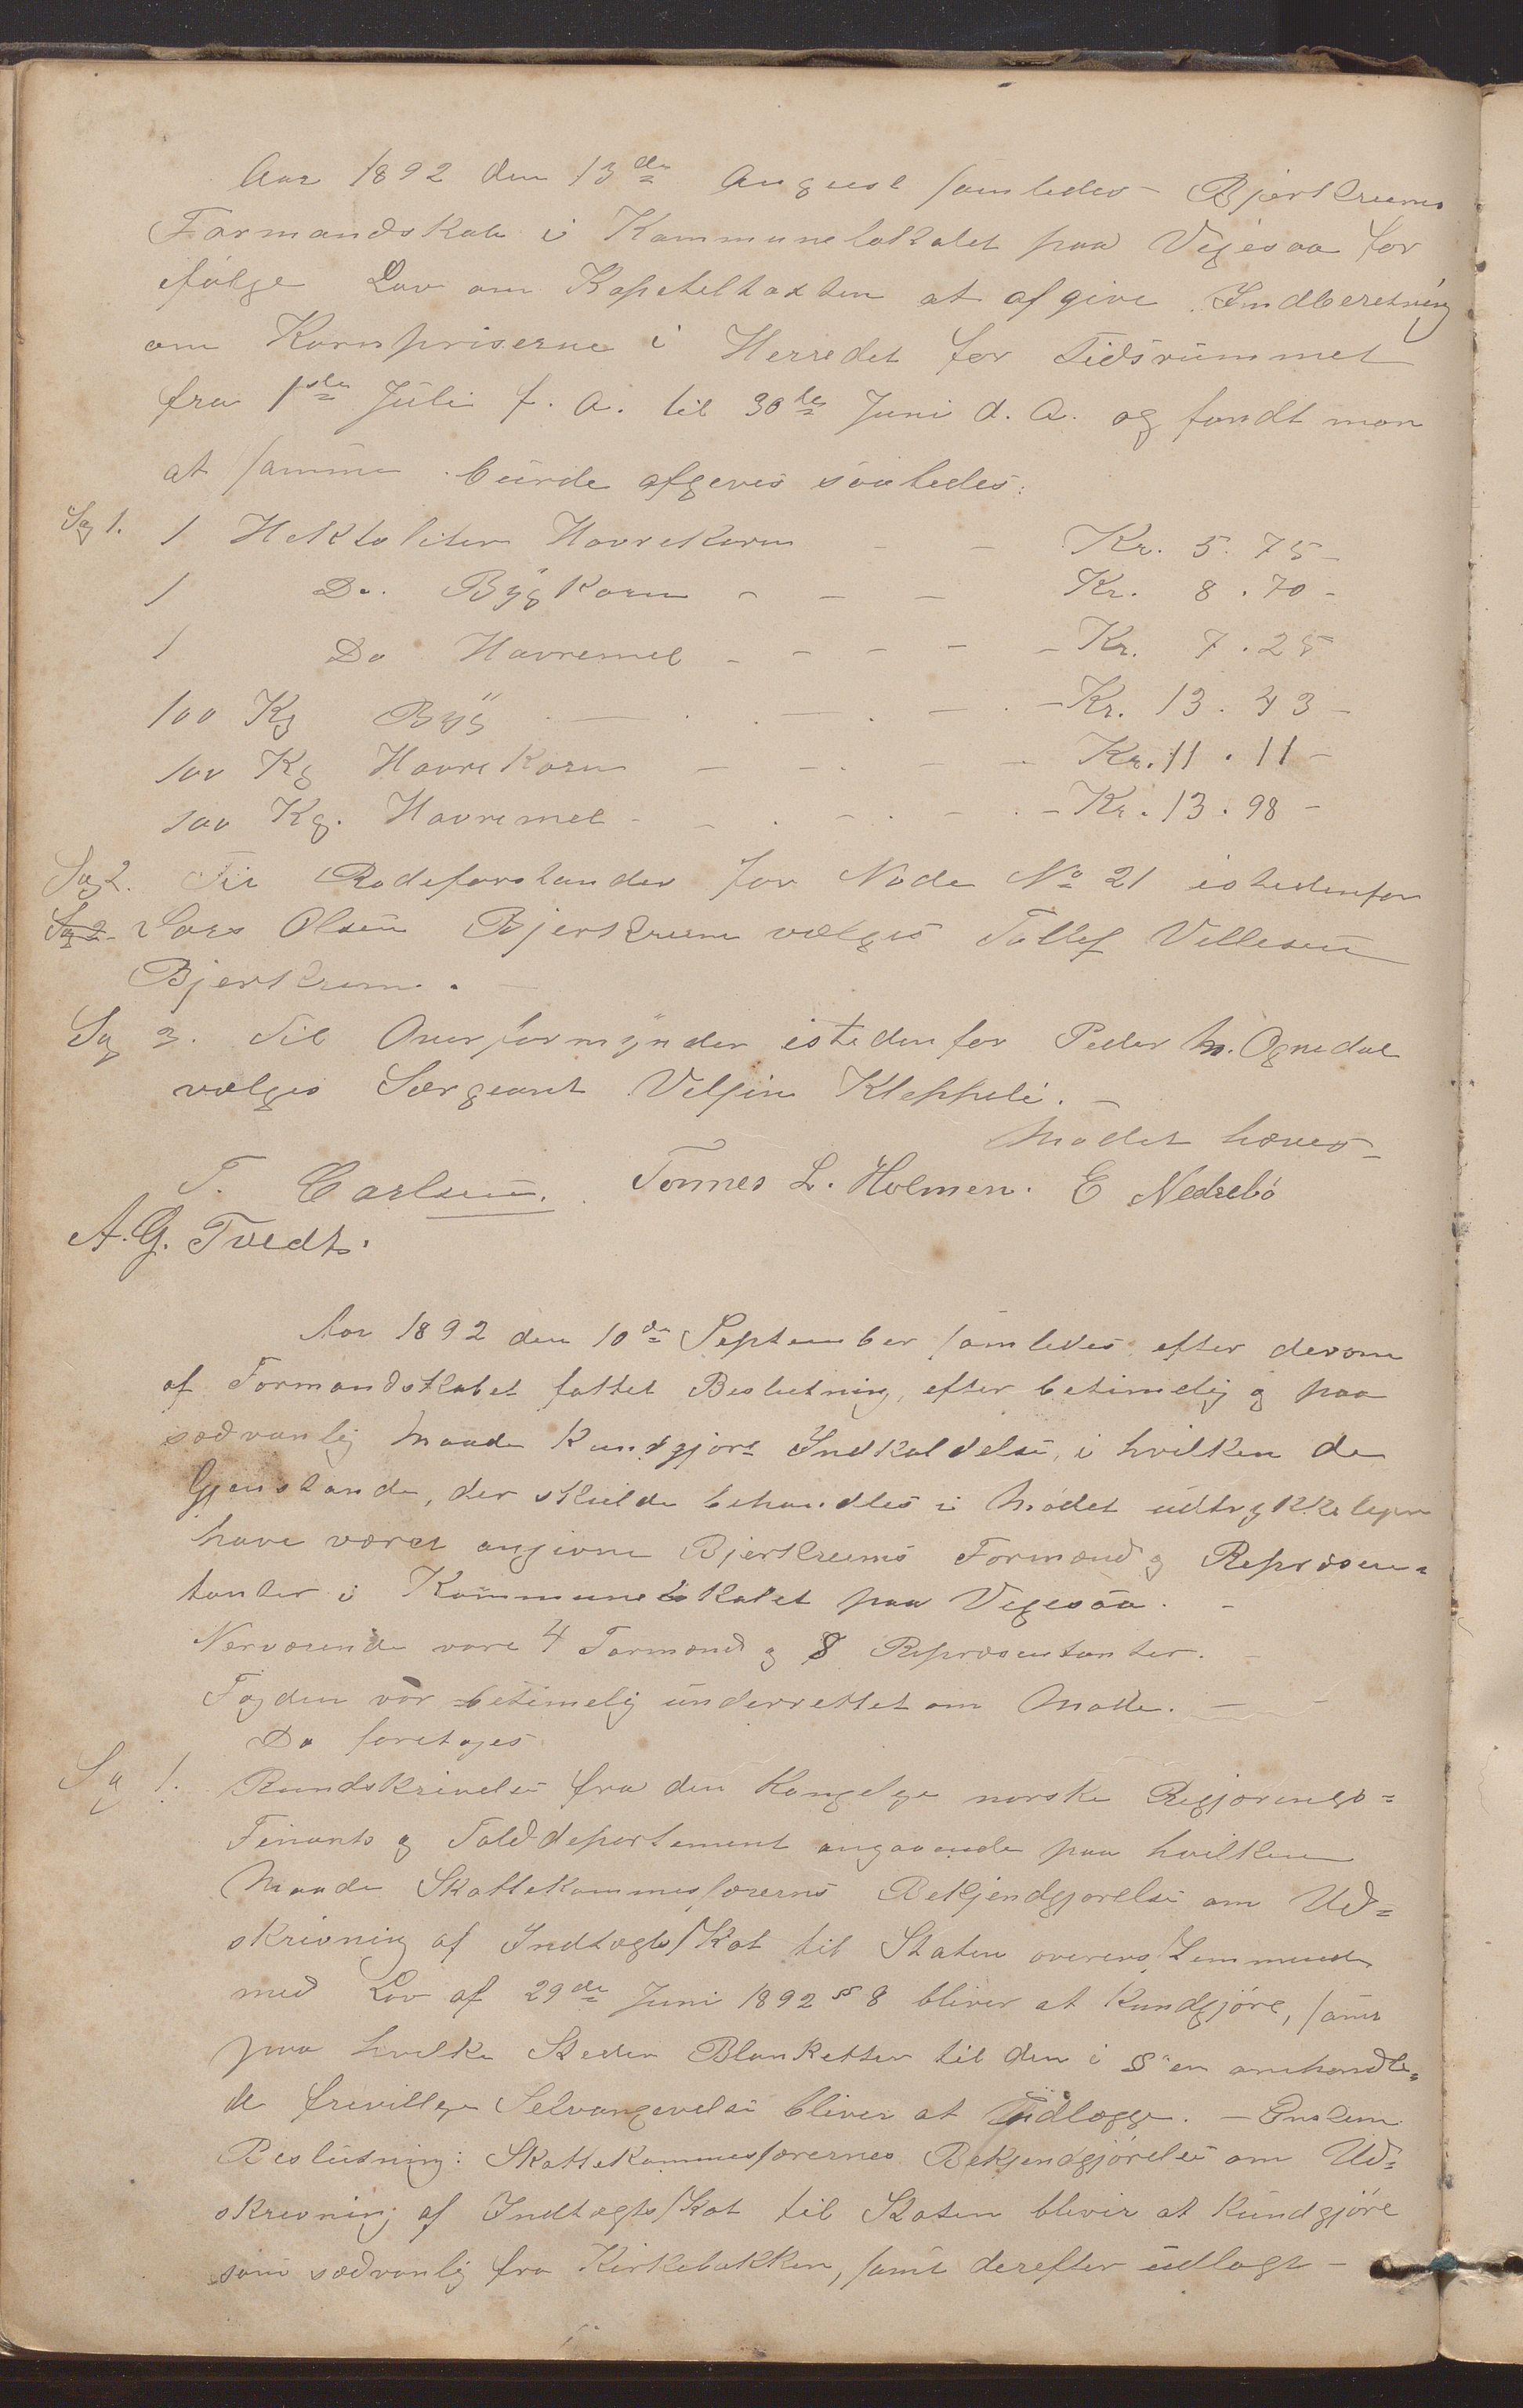 Aar 1892 den 13de August samledes Bjerkreims
Formandskab i Kommunelokalet paa Vigesaa for
ifølge Lov om Kapiteltaxten at afgive Indberetning
om Kornpriserne i Herredet for Tidsrummet
fra 1ste Juli f. A. til 30te Juni d. A. og fandt man
at samme burde afgives saaledes:
Sag 1. 1 Hektoliter Havrekorn - - Kr. 5.75 -
1 Do. Bygkorn - - - Kr. 8.70 -
1 Do Havremel - - - - - Kr. 7.25
100 Kg Byg - - - - Kr. 13.43 -
100 Kg Havrekorn - - - - Kr. 11.11 -
100 Kg. Havremel - - - - - Kr. 13.98 -
Sag 2. Til Rodeforstander for Rode No 21 istedenfor
Sag 2 Lars Olsen Bjerkreim vælges Tollef Villesen
Bjerkreim. -
Sag 3. Til Overformynder istedenfor Peder M. Ognedal
vælges Særgeant Veljin Kleppeli. -
Mødet hæves -
T. Carlsen. Tonnes L. Holmen. E Nedrebö
A. G. Tvedt.
Aar 1892 den 10de September samledes efter derom
af Formandskabet fattet Beslutning, efter betimelig og paa
sædvanlig Maade kundgjort Indkaldelse, i hvilken de
Gjenstande, der skulde behandles i Mødet udtrykkeligen
have været angivne Bjerkreims Formænd og Repræsen=
tanter i Kommunelokalet paa Vigesaa. -
Nærværende vare 4 Formænd og 8 Repræsentanter. -
Fogden var betimelig underrettet om Møde. - -
Da foretoges
Sag 1. Rundskrivelse fra den Kongelige norske Regjerings=
Finants og Tolddepartement angaaende paa hvilken
Maade Skattekommissærerns Bekjendgjørelse om Ud=
skrivning af Indtægtsskat til Staten overensstemmende
med Lov af 29de Juni 1892 § 8 bliver at kundgjöre, samt
paa hvilke Steder Blanketter til den i §'en omhandle=
de frivillige Selvangivelse bliver at Udlægge. - Enstem
Beslutning: Skattekommissærernes Bekjendgjörelse om Ud=
skrivning af Indtægtsskat til Staten bliver at kundgjöre
som sædvanlig fra Kirkebakken, samt derefter udlagt -